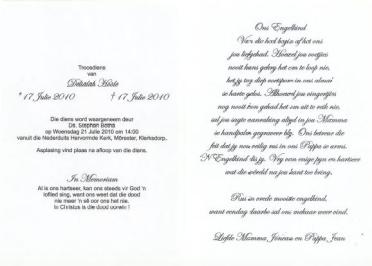 Troosdiens
van
Delialah Heide
* 17 Julie 2010 † 17 Julie 2010
Die diens word waargeneem deur
Ds. Stephan Botha
op Woensdag 21 Julie 2010 om 14:00
vanuit die Nederduits Hervormde Kerk, Mônester, Klerksdorp.
Asplasing vind plaas na afloop van die diens.
In Memoriam
Al is ons hartseer, kan ons steeds vir God 'n
loflied sing, want ons weet dat die dood
nie meer 'n sê oor ons het nie.
In Christus is die dood oorwin!
Ons Engelkind
Van die heel begin af het ons
jou liefgehad. Hoewel jou voetjies
nooit kans gekry het om te loop nie,
het jy tog diep voetspore in ons almal
se harte gelos. Alhoewel jou vingertjies
nog nooit kon gehad het om uit te reik nie,
sal jou sagte aanraking altyd in jou Mamma
se handpalm gegraveer bly. Ons berus in die
feit dat jy nou veilig rus in ons Pappa se arms.
'N Engelkind dis jy. Vry van enige pyn en hartseer
wat die wêreld na jou kant toe bring.
Rus in vrede mooiste engelkind,
want eendag daarbo sal ons mekaar weer vind.
Liefde Mamma, Joneas en Pappa Jean